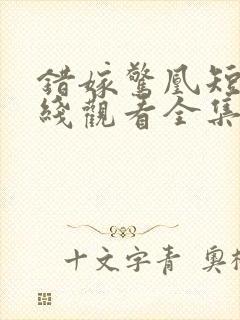 錯嫁驚凰短
綫觀看全集
十文字青 奧